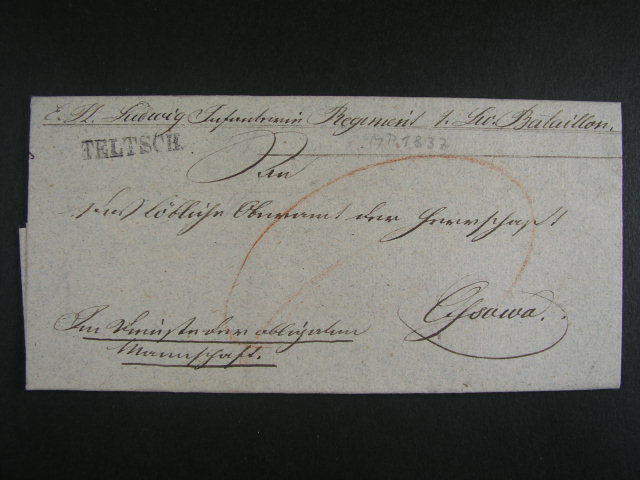 E. H. Ludwig Infanterie Regiment 1. Lw. Bataillon.
TELTSCH
1837
An
das löbliche Oberamt der Herrschaft
Ossowa.
Im Dienste der obligaten
Mannschaft.